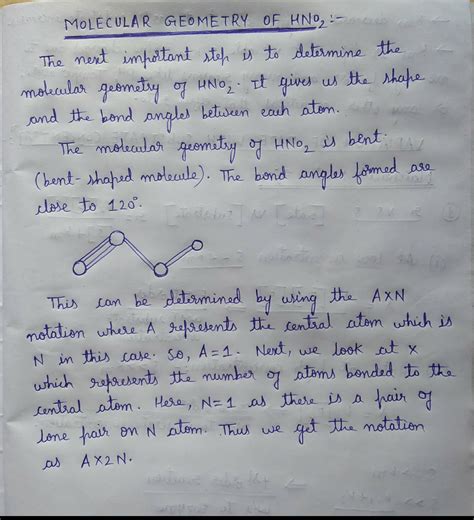 MOLECULAR GEOMETRY OF HNO₂:-
The next important step is to determine the
molecular geometry of HNO₂. It gives us the shape
and the bond angles between each atom.
The molecular geometry of HNO₂ is bent
(bent-shaped molecule). The bond angles formed are
close to 120°.
This can be determined by using the AXN
notation where A represents the central atom which is
N in this case. So, A=1. Next, we look at X
which represents the number of atoms bonded to the
central atom. Here, N=1 as there is a pair of
lone pair on N atom. Thus we get the notation
as AX2N.